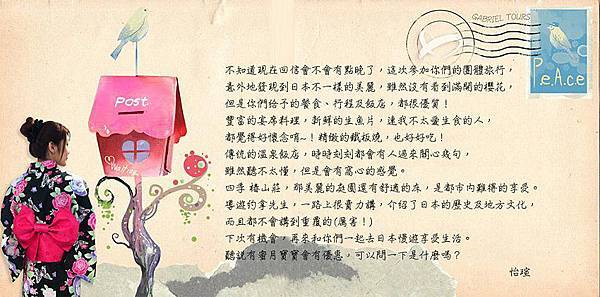 GABRIEL TOURS
P.e.A.c.e
Post
不知道現在回信會不會有點晚了，這次參加你們的團體旅行，
意外地發現到日本不一樣的美麗，雖然沒有看到滿開的櫻花，
但是你們給予的餐食、行程及飯店，都很優質！
豐富的宴席料理，新鮮的生魚片，連我不太愛生食的人，
都覺得好懷念唷~！精緻的鐵板燒，也好好吃！
傳統的溫泉飯店，時時刻刻都會有人過來關心幾句，
雖然聽不太懂，但是會有窩心的感覺。
四季 椿山莊，那美麗的庭園還有舒適的床，是都市內難得的享受。
導遊約拿先生，一路上很賣力講，介紹了日本的歷史及地方文化，
而且都不會講到重覆的(厲害！)
下次有機會，再來和你們一起去日本慢遊享受生活。
聽說有蜜月寶寶會有優惠，可以問一下是什麼嗎？
怡瑄